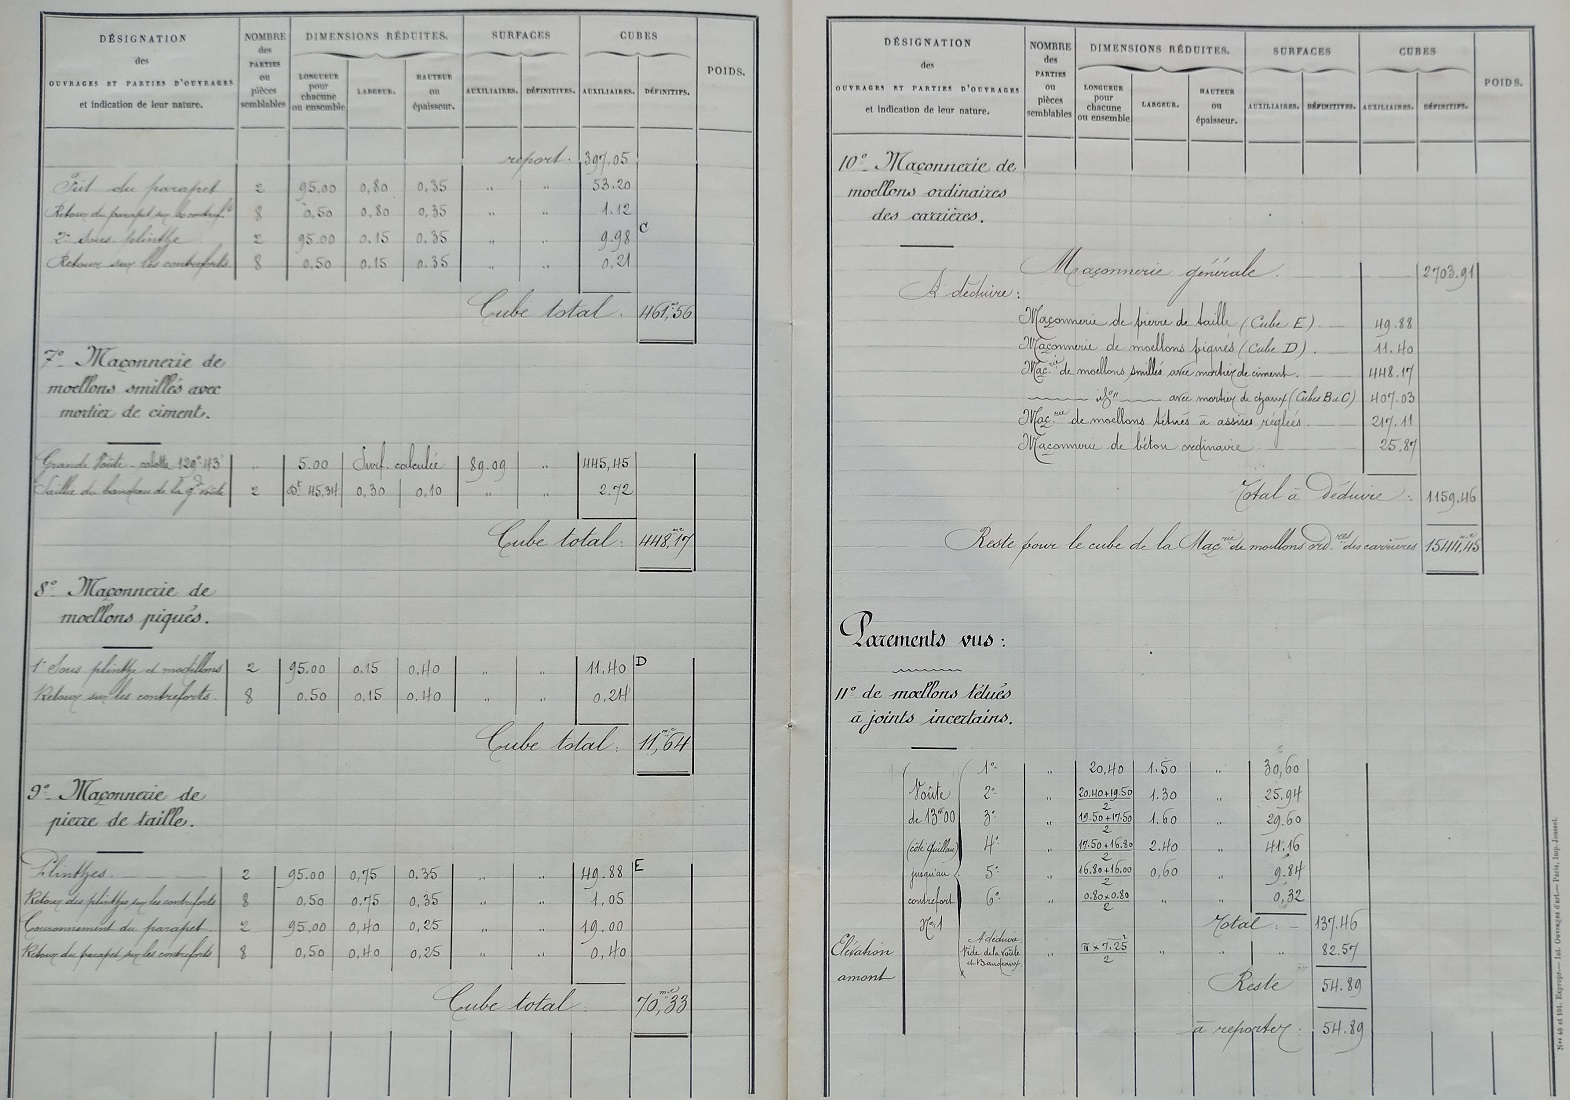 DÉSIGNATION
des
OUVRAGES ET PARTIES D'OUVRAGES
et indication de leur nature.
NOMBRE
des
PARTIES
ou
pièces
semblables
DIMENSIONS RÉDUITES.
LONGUEUR
pour
chacune
ou ensemble
LARGEUR.
HAUTEUR
ou
épaisseur.
SURFACES
AUXILIAIRES.
DÉFINITIVES.
CUBES
AUXILIAIRES.
DÉFINITIFS.
POIDS.
report. 397.05
Fût du parapet 2 95.00 0,80 0,35 " " 53.20
Retour du parapet sur les contref.ts 8 0,50 0,80 0,35 " " 1.12
2e Sous-plinthe 2 95.00 0.15 0.35 " " 9.98 C
Retour sur les contreforts 8 0.50 0,15 0.35 " " 0,21
Cube total. 461,56
7° Maçonnerie de
moellons smillés avec
mortier de ciment.
Grande Voûte - calotte 129°43' " 5.00 Surf. calculée 89.09 " 445,45
Saillie du bandeau de la gde voûte 2 Dt 45,34 0,30 0,10 " " 2.72
Cube total: 448,17
8° Maçonnerie de
moellons piqués.
1e Sous plinthe et modillons 2 95.00 0.15 0,40 " " 11.40 D
Retour sur les contreforts. 8 0.50 0,15 0,40 " " 0.24
Cube total: 11,64
9° Maçonnerie de
pierre de taille.
Plinthes. 2 95.00 0,75 0.35 " " 49.88 E
Retour des plinthes sur les contreforts 8 0,50 0.75 0,35 " " 1,05
Couronnement du parapet. 2 95.00 0,40 0,25 " " 19.00
Retour du parapet sur les contreforts 8 0,50 0,40 0,25 " " 0,40
Cube total 70,33
DÉSIGNATION
des
OUVRAGES ET PARTIES D'OUVRAGES
et indication de leur nature.
NOMBRE
des
PARTIES
ou
pièces
semblables
DIMENSIONS RÉDUITES.
LONGUEUR
pour
chacune
ou ensemble
LARGEUR.
HAUTEUR
ou
épaisseur.
SURFACES
AUXILIAIRES.
DÉFINITIVES.
CUBES
AUXILIAIRES.
DÉFINITIFS.
POIDS.
10° Maçonnerie de
moellons ordinaires
des carrières.
Maçonnerie générale. 2703.91
A déduire:
Maçonnerie de pierre de taille (Cube E). 49.88
Maçonnerie de moellons piqués (Cube D). 11.40
Maç.rie de moellons smillés avec mortier de ciment. 448.17
id° avec mortier de chaux (Cubes B et C) 407.03
Maç.rie de moellons têtués à assises réglées. 217.11
Maçonnerie de béton ordinaire. 25,87
Total à Déduire: 1159,46
Reste pour le cube de la Maç.rie de moellons ord.res des carrières 1544,45
Parements vus:
11° de moellons têtués
à joints incertains.
1° " 20,40 1.50 " 30,60
Voûte 2° " 20.40+19.50 / 2 1.30 " 25.94
de 13m00 3° " 19.50+17.50 / 2 1.60 " 29.60
(côté Quillan) 4° " 17.50+16.80 / 2 2.40 " 41,16
jusqu'au 5° " 16.80+16.00 / 2 0,60 " 9.84
contrefort 6° " 0.80×0.80 / 2 " " 0,32
N° 1 Total: 137.46
Elévation
amont
A déduire
Vide de la Voûte
et Bandeaux. " π×7.25² / 2 " " " 82.57
Reste 54.89
à reporter: 54.89
Nos 40 et 101. Expropr.— Inf. Ouvrages d'art.— Paris, Imp. Jousset.